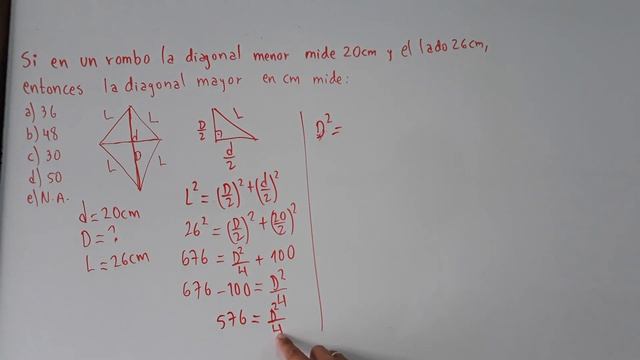 Si en un rombo la diagonal menor mide 20cm y el lado 26cm,
entonces la diagonal mayor en cm mide:
a) 36
b) 48
c) 30
d) 50
e) N.A.
L L
d
D
L L
d=20cm
D=?
L=26cm
D/2 L
d/2
L² = (D/2)² + (d/2)²
26² = (D/2)² + (20/2)²
676 = D²/4 + 100
676 - 100 = D²/4
576 = D²/4
D² =